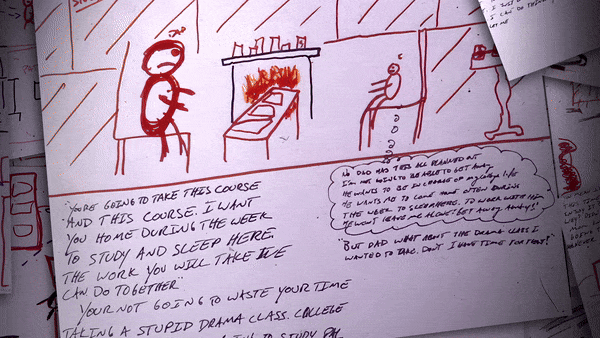 "YOU'RE GOING TO TAKE THIS COURSE
AND THIS COURSE. I WANT
YOU HOME DURING THE WEEK
TO STUDY AND SLEEP HERE.
THE WORK YOU WILL TAKE WE
CAN DO TOGETHER"
YOUR NOT GOING TO WASTE YOUR TIME
TAKING A STUPID DRAMA CLASS. COLLEGE
TO STUDY
DAD
NO DAD HAS THIS ALL PLANNED OUT
I'M NOT GOING TO BE ABLE TO GET AWAY
HE WANTS TO BE IN CHARGE OF MY COLLEGE LIFE
HE WANTS ME TO COME HOME OFTEN DURING
THE WEEK TO SLEEP HERE. TO WORK WITH HIM
HE WON'T LEAVE ME ALONE! GET AWAY AWAY!!
"BUT DAD WHAT ABOUT THE DRAMA CLASS I
WANTED TO TAKE. DON'T I HAVE TIME FOR THAT?"
I CAN DO
LET ME